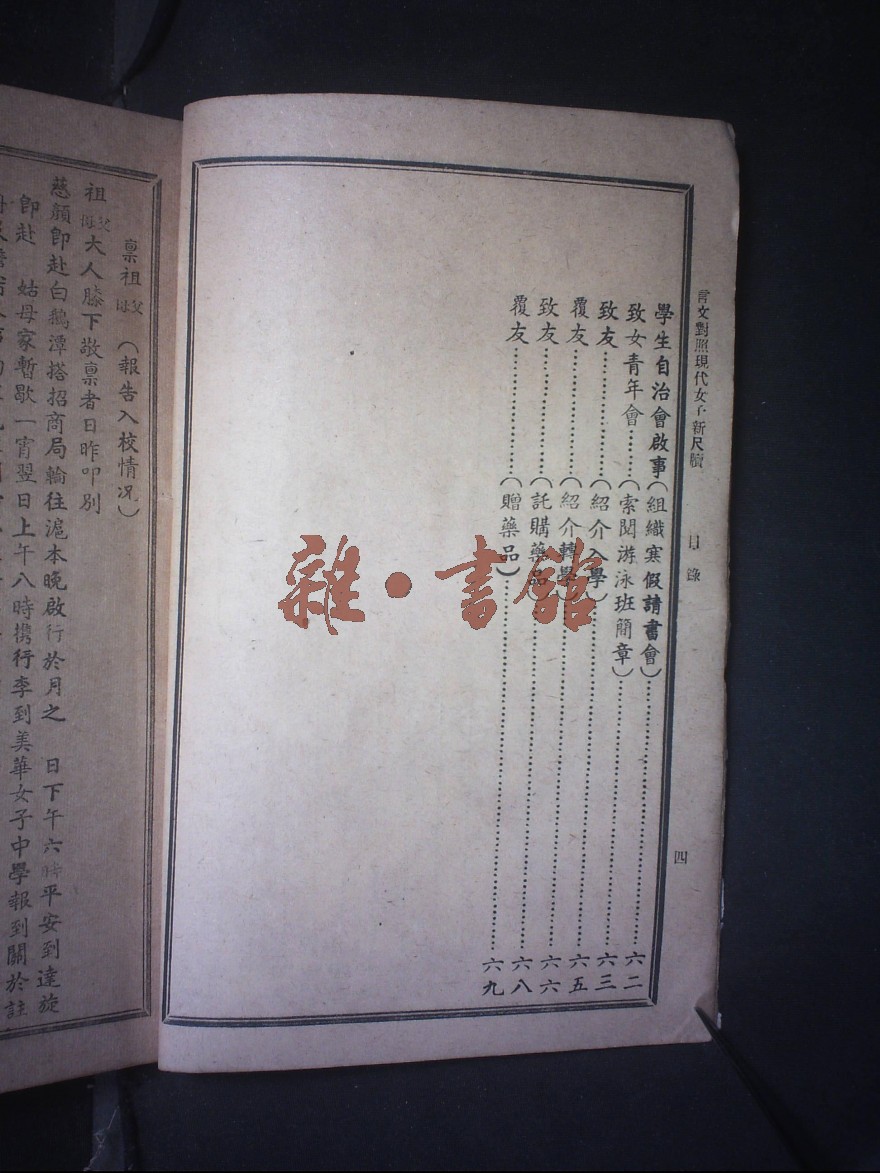 言文對照現代女子新尺牘　目錄　四
學生自治會啟事(組織寒假請書會)……六二
致女青年會……(索閱游泳班簡章)……六三
致友……(紹介入學)……六五
覆友……(紹介轉學)……六六
致友……(託購藥品)……六八
覆友……(贈藥品)……六九
雜·書館
稟祖父母(報告入校情况)
祖父母大人膝下敬稟者日昨叩別
慈顏卽赴白鵝潭搭招商局輪往滬本晚啟行於月之　日下午六時平安到達旋
卽赴　姑母家暫歇一宵翌日上午八時携行李到美華女子中學報到關於註